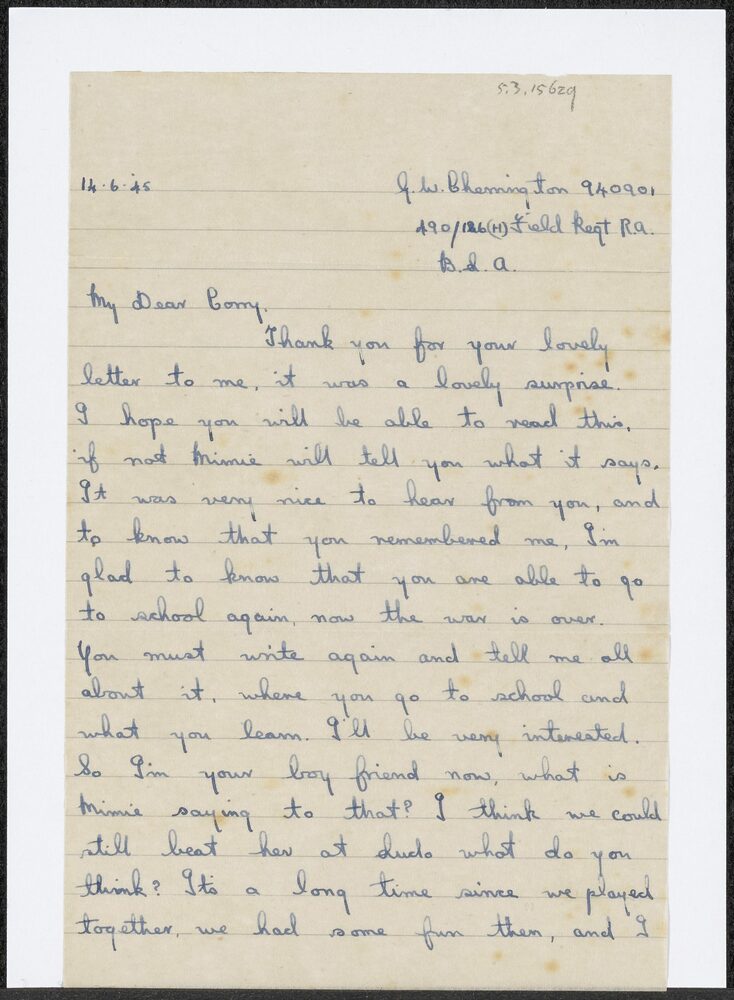 5.3.15629
14.6.45
G. W. Chennington 940901
490/126(H) Field Regt R.A.
B.L.A.
My Dear Corry,
Thank you for your lovely
letter to me, it was a lovely surprise.
I hope you will be able to read this,
if not Mimie will tell you what it says.
It was very nice to hear from you, and
to know that you remembered me, I'm
glad to know that you are able to go
to school again, now the war is over.
You must write again and tell me all
about it, where you go to school and
what you learn. I'll be very interested.
So I'm your boy friend now, what is
Mimie saying to that? I think we could
still beat her at ludo what do you
think? Its a long time since we played
together, we had some fun then, and I